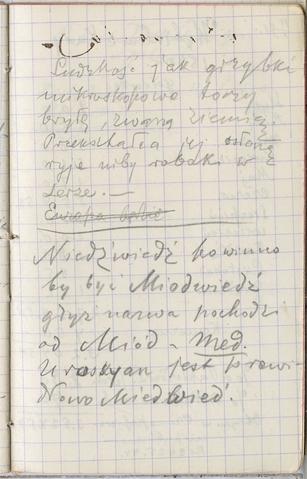 Ludzkość jak grzybki
mikroskopowe toczy
bryłę zwaną ziemią.
Przekształca jej osłonę
ryje niby robaki w
serze. —
Europa będzie
Niedźwiedź powinno
by być Miodwiedź
gdyż nazwa pochodzi
od Miód - Med.
U rosyan jest prawi-
dłowo Miedwied'.